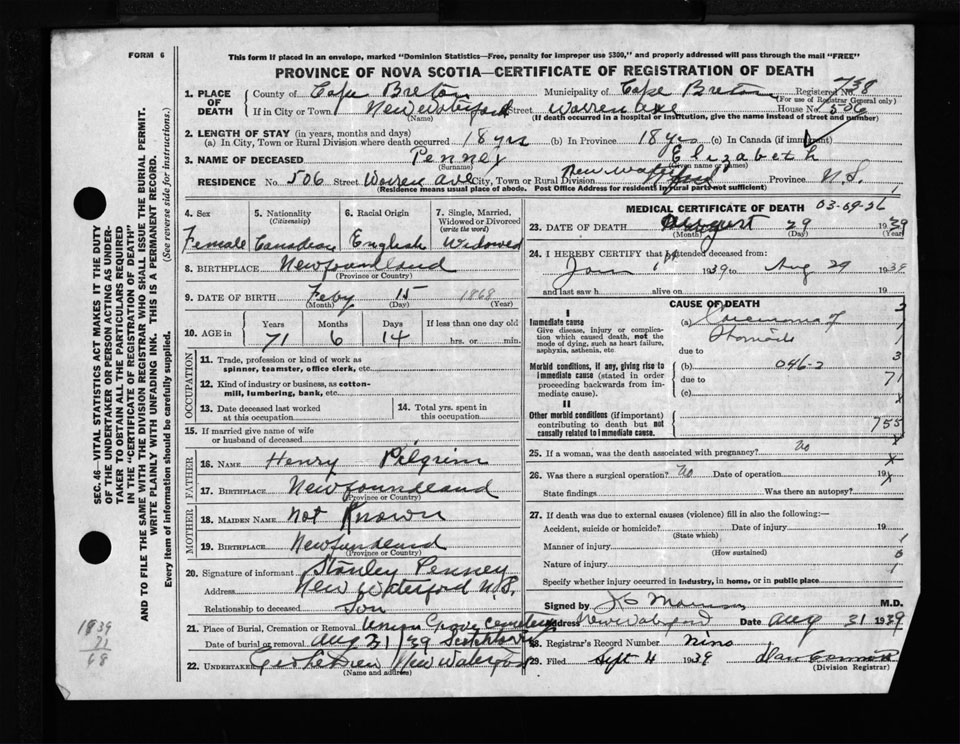 FORM 6
This form if placed in an envelope, marked "Dominion Statistics—Free, penalty for improper use $300," and properly addressed will pass through the mail "FREE"
PROVINCE OF NOVA SCOTIA—CERTIFICATE OF REGISTRATION OF DEATH
1. PLACE OF DEATH County of Cape Breton Municipality of Cape Breton Registered No. 738
(For use of Registrar General only)
If in City or Town New Waterford Street Warren ave House No. 506
(Name) (If death occurred in a hospital or institution, give the name instead of street and number)
2. LENGTH OF STAY (in years, months and days)
(a) In City, Town or Rural Division where death occurred 18 yrs (b) In Province 18 yrs (c) In Canada (if immigrant)
3. NAME OF DECEASED Penney Elizabeth
(Surname) (Given name or names)
RESIDENCE No. 506 Street Warren ave City, Town or Rural Division New Waterford Province N.S.
(Residence means usual place of abode. Post Office Address for residents in rural parts not sufficient)
4. Sex 5. Nationality (Citizenship) 6. Racial Origin 7. Single, Married, Widowed or Divorced (write the word)
Female Canadian English Widowed
8. BIRTHPLACE Newfoundland
(Province or Country)
9. DATE OF BIRTH Feby 15 1868
(Month) (Day) (Year)
10. AGE in Years Months Days If less than one day old
71 6 14 hrs. or min.
OCCUPATION
11. Trade, profession or kind of work as spinner, teamster, office clerk, etc.
12. Kind of industry or business, as cotton-mill, lumbering, bank, etc.
13. Date deceased last worked at this occupation
14. Total yrs. spent in this occupation
15. If married give name of wife or husband of deceased
FATHER
16. NAME Henry Pilgrim
17. BIRTHPLACE Newfoundland
(Province or Country)
MOTHER
18. MAIDEN NAME not Known
19. BIRTHPLACE Newfundland
(Province or Country)
20. Signature of informant Stanley Penney
Address New Waterford N.S.
Relationship to deceased Son
21. Place of Burial, Cremation or Removal Union Grove Cemetery
Date of burial or removal Aug 31/39
22. UNDERTAKER New Waterford
(Name and address)
MEDICAL CERTIFICATE OF DEATH 03-09-26
23. DATE OF DEATH August 29 1939
(Month) (Day) (Year)
24. I HEREBY CERTIFY that I attended deceased from:
Jan 1st 1939 to Aug 29 1939
and last saw h alive on 19
CAUSE OF DEATH
I
Immediate cause
Give disease, injury or complication which caused death, not the mode of dying, such as heart failure, asphyxia, asthenia, etc
(a)
due to
Morbid conditions, if any, giving rise to immediate cause (stated in order proceeding backwards from immediate cause).
(b) 046-2
due to
(c)
II
Other morbid conditions (if important) contributing to death but not causally related to immediate cause.
3
1
1
3
71
x
755
x
25. If a woman, was the death associated with pregnancy? no
26. Was there a surgical operation? no Date of operation 19
State findings Was there an autopsy?
x
27. If death was due to external causes (violence) fill in also the following:—
Accident, suicide or homicide? Date of injury 19
(State which)
Manner of injury
(How sustained)
Nature of injury
Specify whether injury occurred in industry, in home, or in public place
1
6
1
Signed by M.D.
Address New Waterford Date Aug 31 1939
28. Registrar's Record Number nine
29. Filed Sept 4 1939 Dan
(Division Registrar)
SEC. 46—VITAL STATISTICS ACT MAKES IT THE DUTY
OF THE UNDERTAKER OR PERSON ACTING AS UNDER-
TAKER TO OBTAIN ALL THE PARTICULARS REQUIRED
IN THE "CERTIFICATE OF REGISTRATION OF DEATH"
AND TO FILE THE SAME WITH THE DIVISION REGISTRAR WHO SHALL ISSUE THE BURIAL PERMIT.
WRITE PLAINLY WITH UNFADING INK. THIS IS A PERMANENT RECORD.
Every item of information should be carefully supplied. (See reverse side for instructions.)
1939
71
68